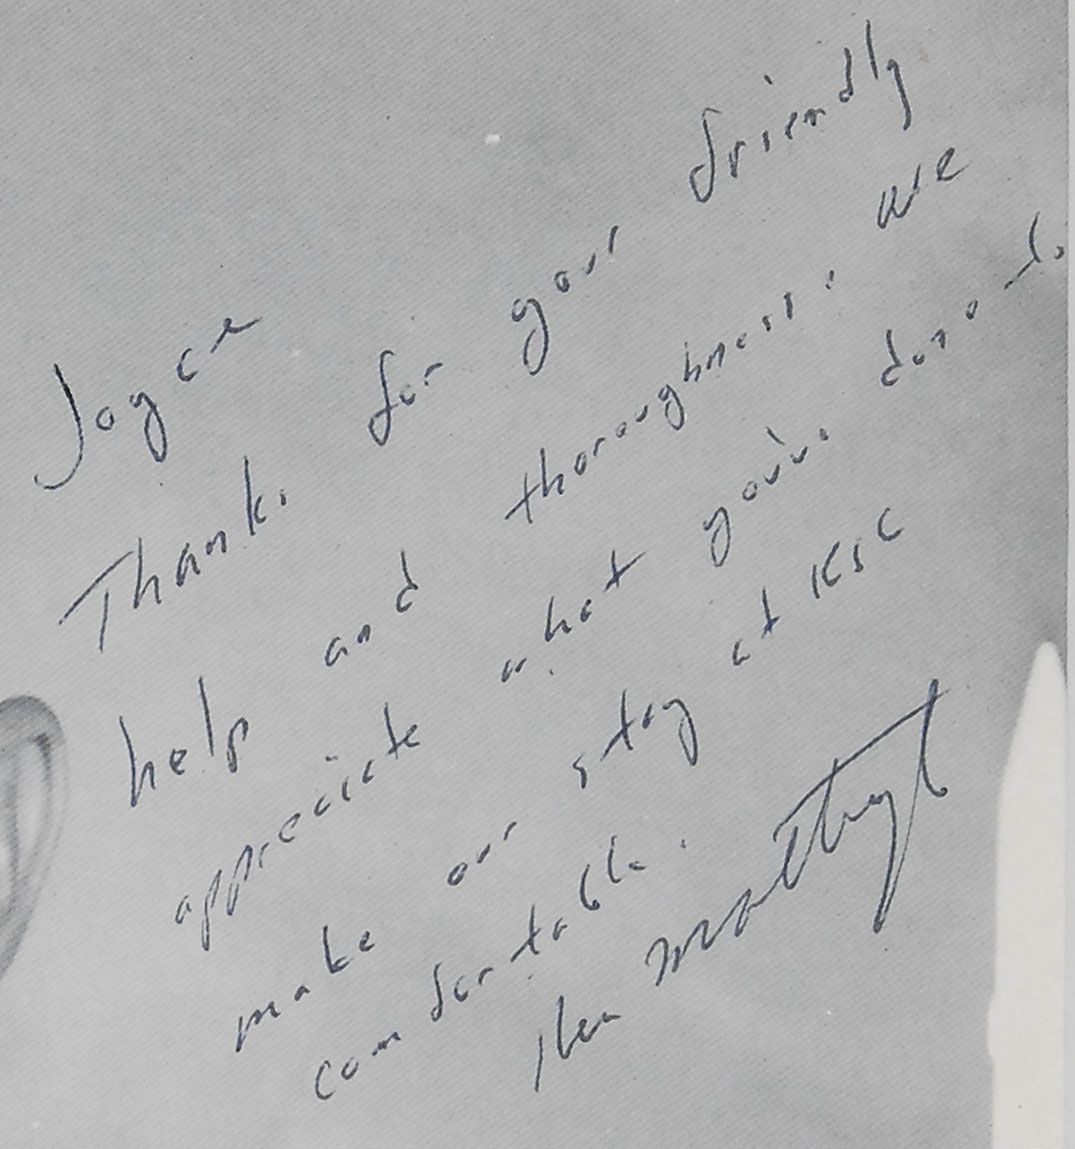 Joyce
Thanks for your friendly
help and thoroughness. We
appreciate what you've done to
make our stay at KSC
comfortable.
Ken Mattingly